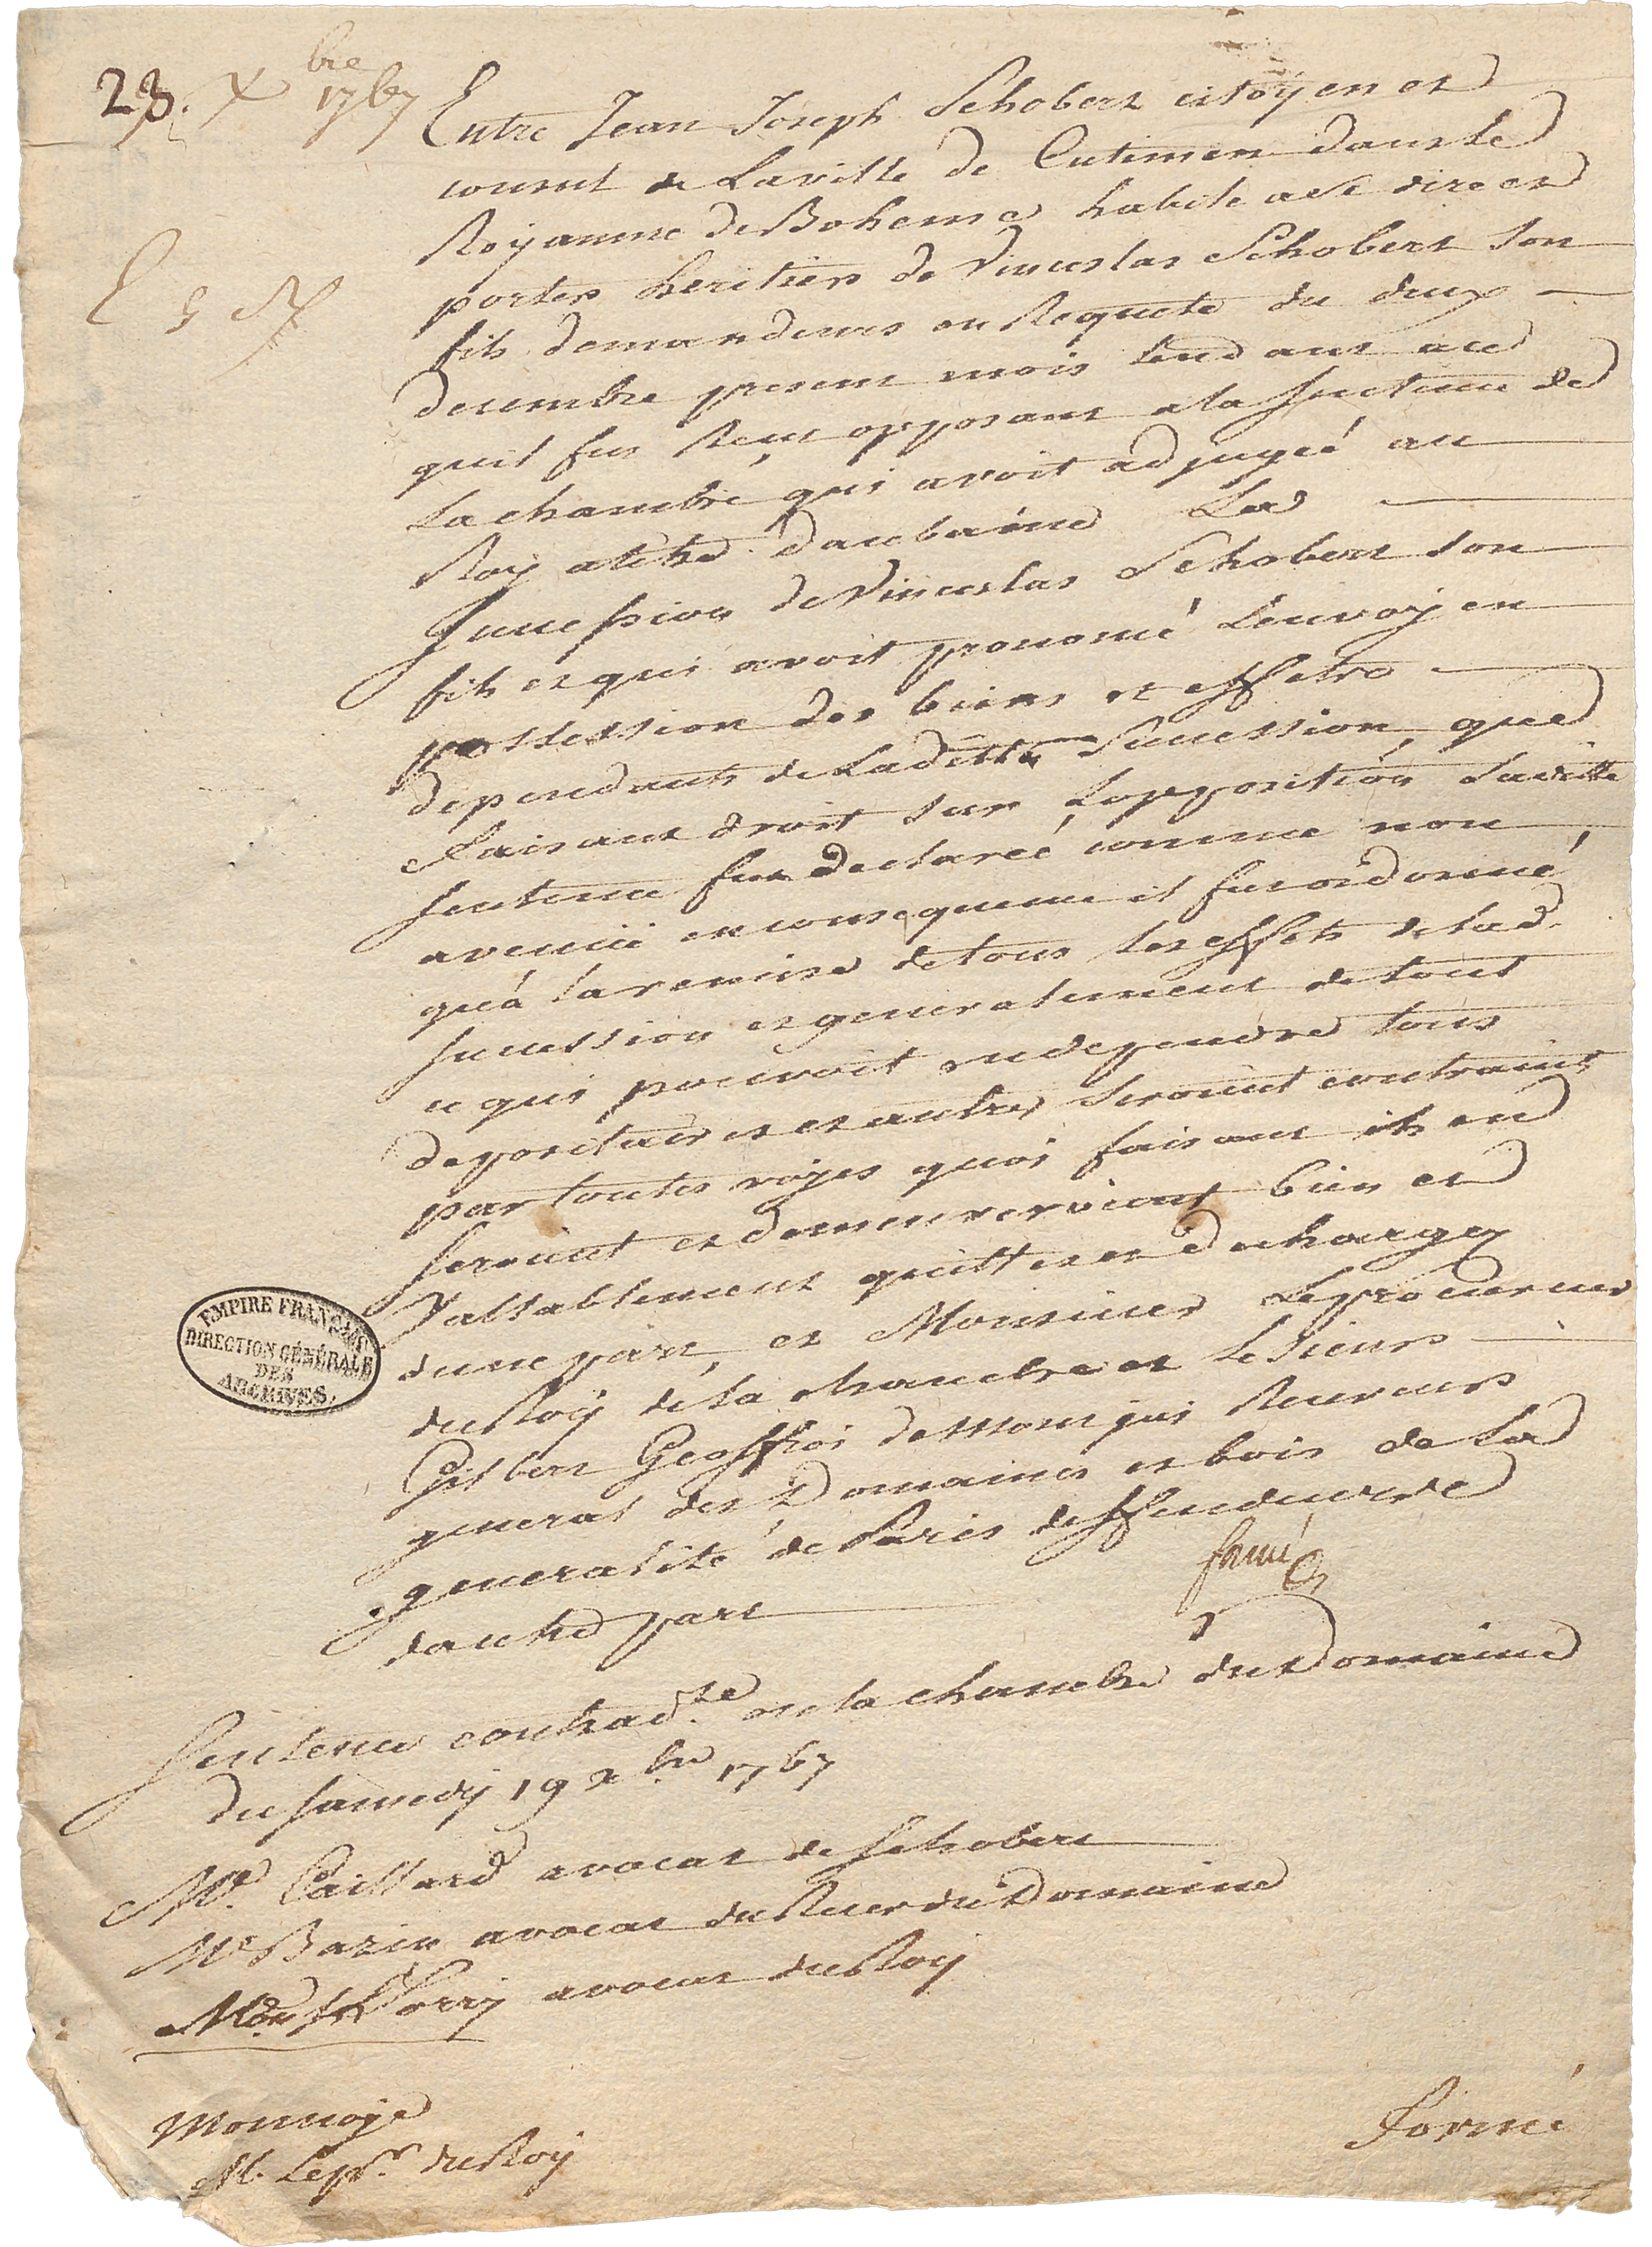 23. Xbre 1767
Entre Jean Joseph Schobert citoyen et
consul de Laville de Cutimen dans le
Royaume de Boheme habile a se dire et
porter heritier de Vinceslas Schobert son
fils demandeur en Requete du deux
decembre present mois tendant a ce
quil fut Recu opposant a la sentence de
La chambre qui avoit adjugeé au
Roy atitre daubaine La
succession de Vinceslas Schobert son
fils et qui avoit prononcé Lenvoy en
possession des biens et effets
dependants de Laditte Succession que
faisant droit sur Lopposition Laditte
sentence fut declareé comme non
avenüe en consequence il fut ordonné
qu'a la remise de tous les effets de lad.
succession et generalement de tout
ce qui pouvoit en dependre tous
depositaires et autres seroient contraints
par toutes voyes quoi faisant ils en
seroient et demeureroient bien et
Vallablement quittes et decharges
dune part, et Monsieur Leprocureur
du Roy de la chambre et Le Sieur
Gilbert Geoffroi de Montjai Receveur
general des Domaines et bois de La
generalité de Paris deffendeurs
dautre part
formé
Sentence contrad.re en la chambre du Domaine
du samedy 19 xbre 1767
Me. Caillard avocat de Schobert
Me Bazin avocat du Recer du Domaine
avocat du Roy
Monnoye
M. Lepr. du Roy
Formé
EMPIRE FRANÇAIS
DIRECTION GÉNÉRALE
DES
ARCHIVES.